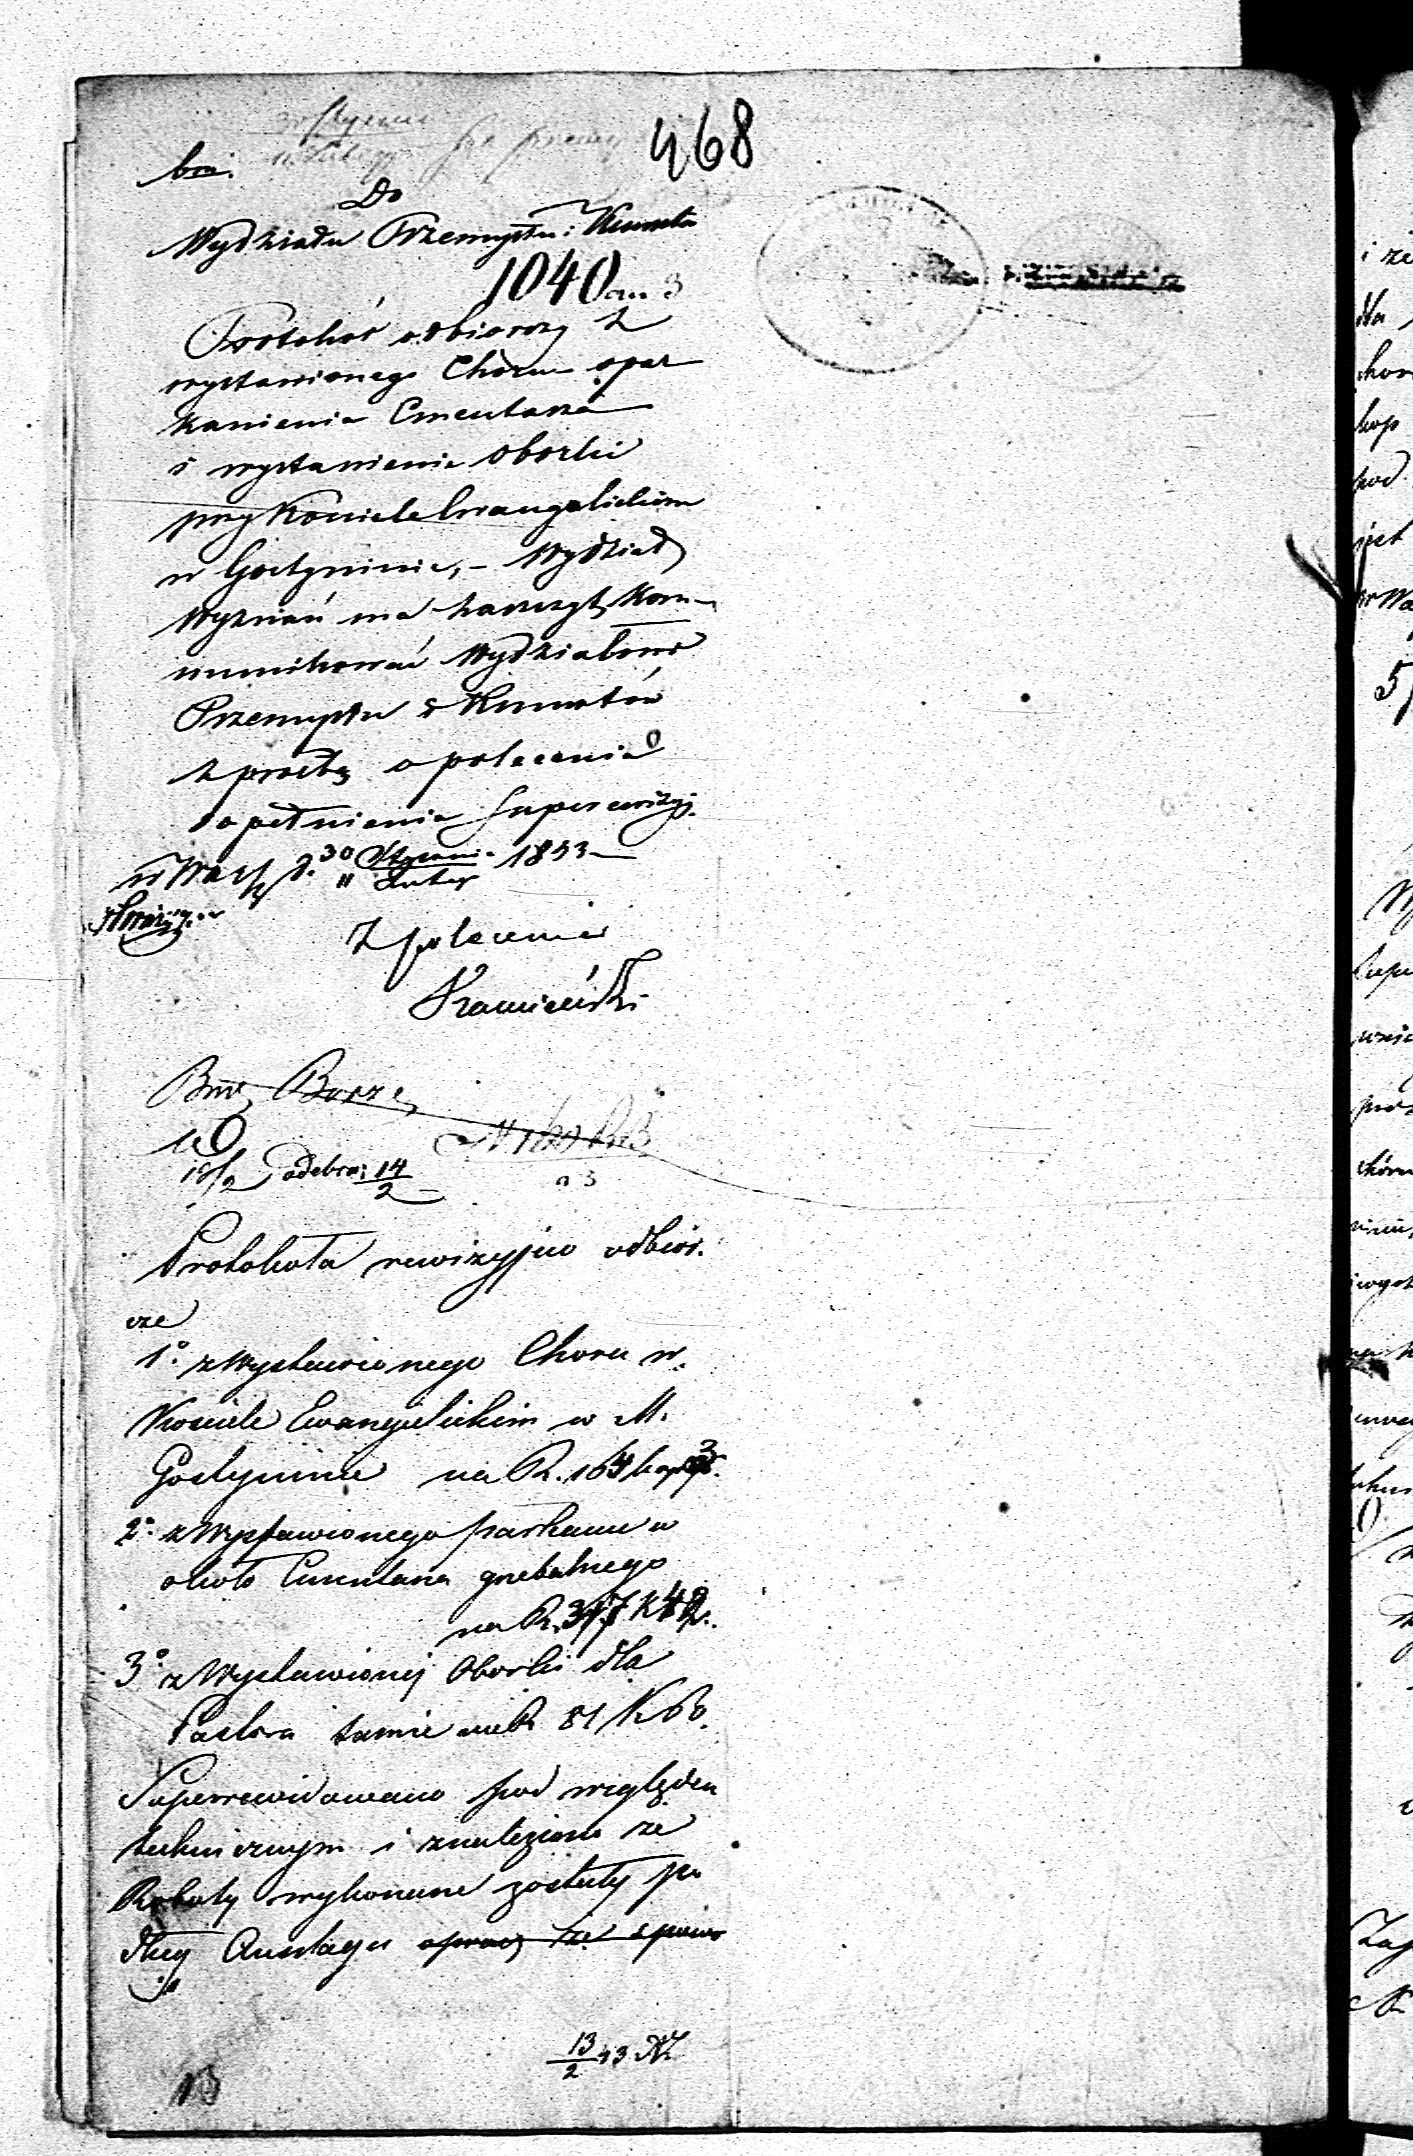 468
Do
Wydziału Przemysłu i Kunsztu
1040
Protokół odbiorczy z
wystawionego Chóru opar
kanienia Cmentarza
i wystawienia Oborki
przy Kościele Ewangelickim
w Gostyninie, – Wydział
Wyznań ma zaszczyt Kom-
munikować Wydziałowi
Przemysłu i Kunsztów
z prośbą o polecenie
dopełnienia Superrewizyi.
w Warsz. d. 30 Stycznia 1843
11 Lutego
Z polecenia
Bud. Borze
18/2 odebra: 14/2
Protokoła rewizyjno odbior.
cze
1° z Wystawionego Choru w
Kościele Ewangielickim w M.
Gostyninie na R. 164 kop
2° z Wystawionego parkanu w
około Cmentarza grzebalnego
na R. 317 K 42.
3° z Wystawionej Oborki dla
Pastora tamże na R 81 K
Superrewidowano pod względem
technicznym i znaleziono że
Roboty wykonane zostały po
dług Anszlagu
13/2 43
13